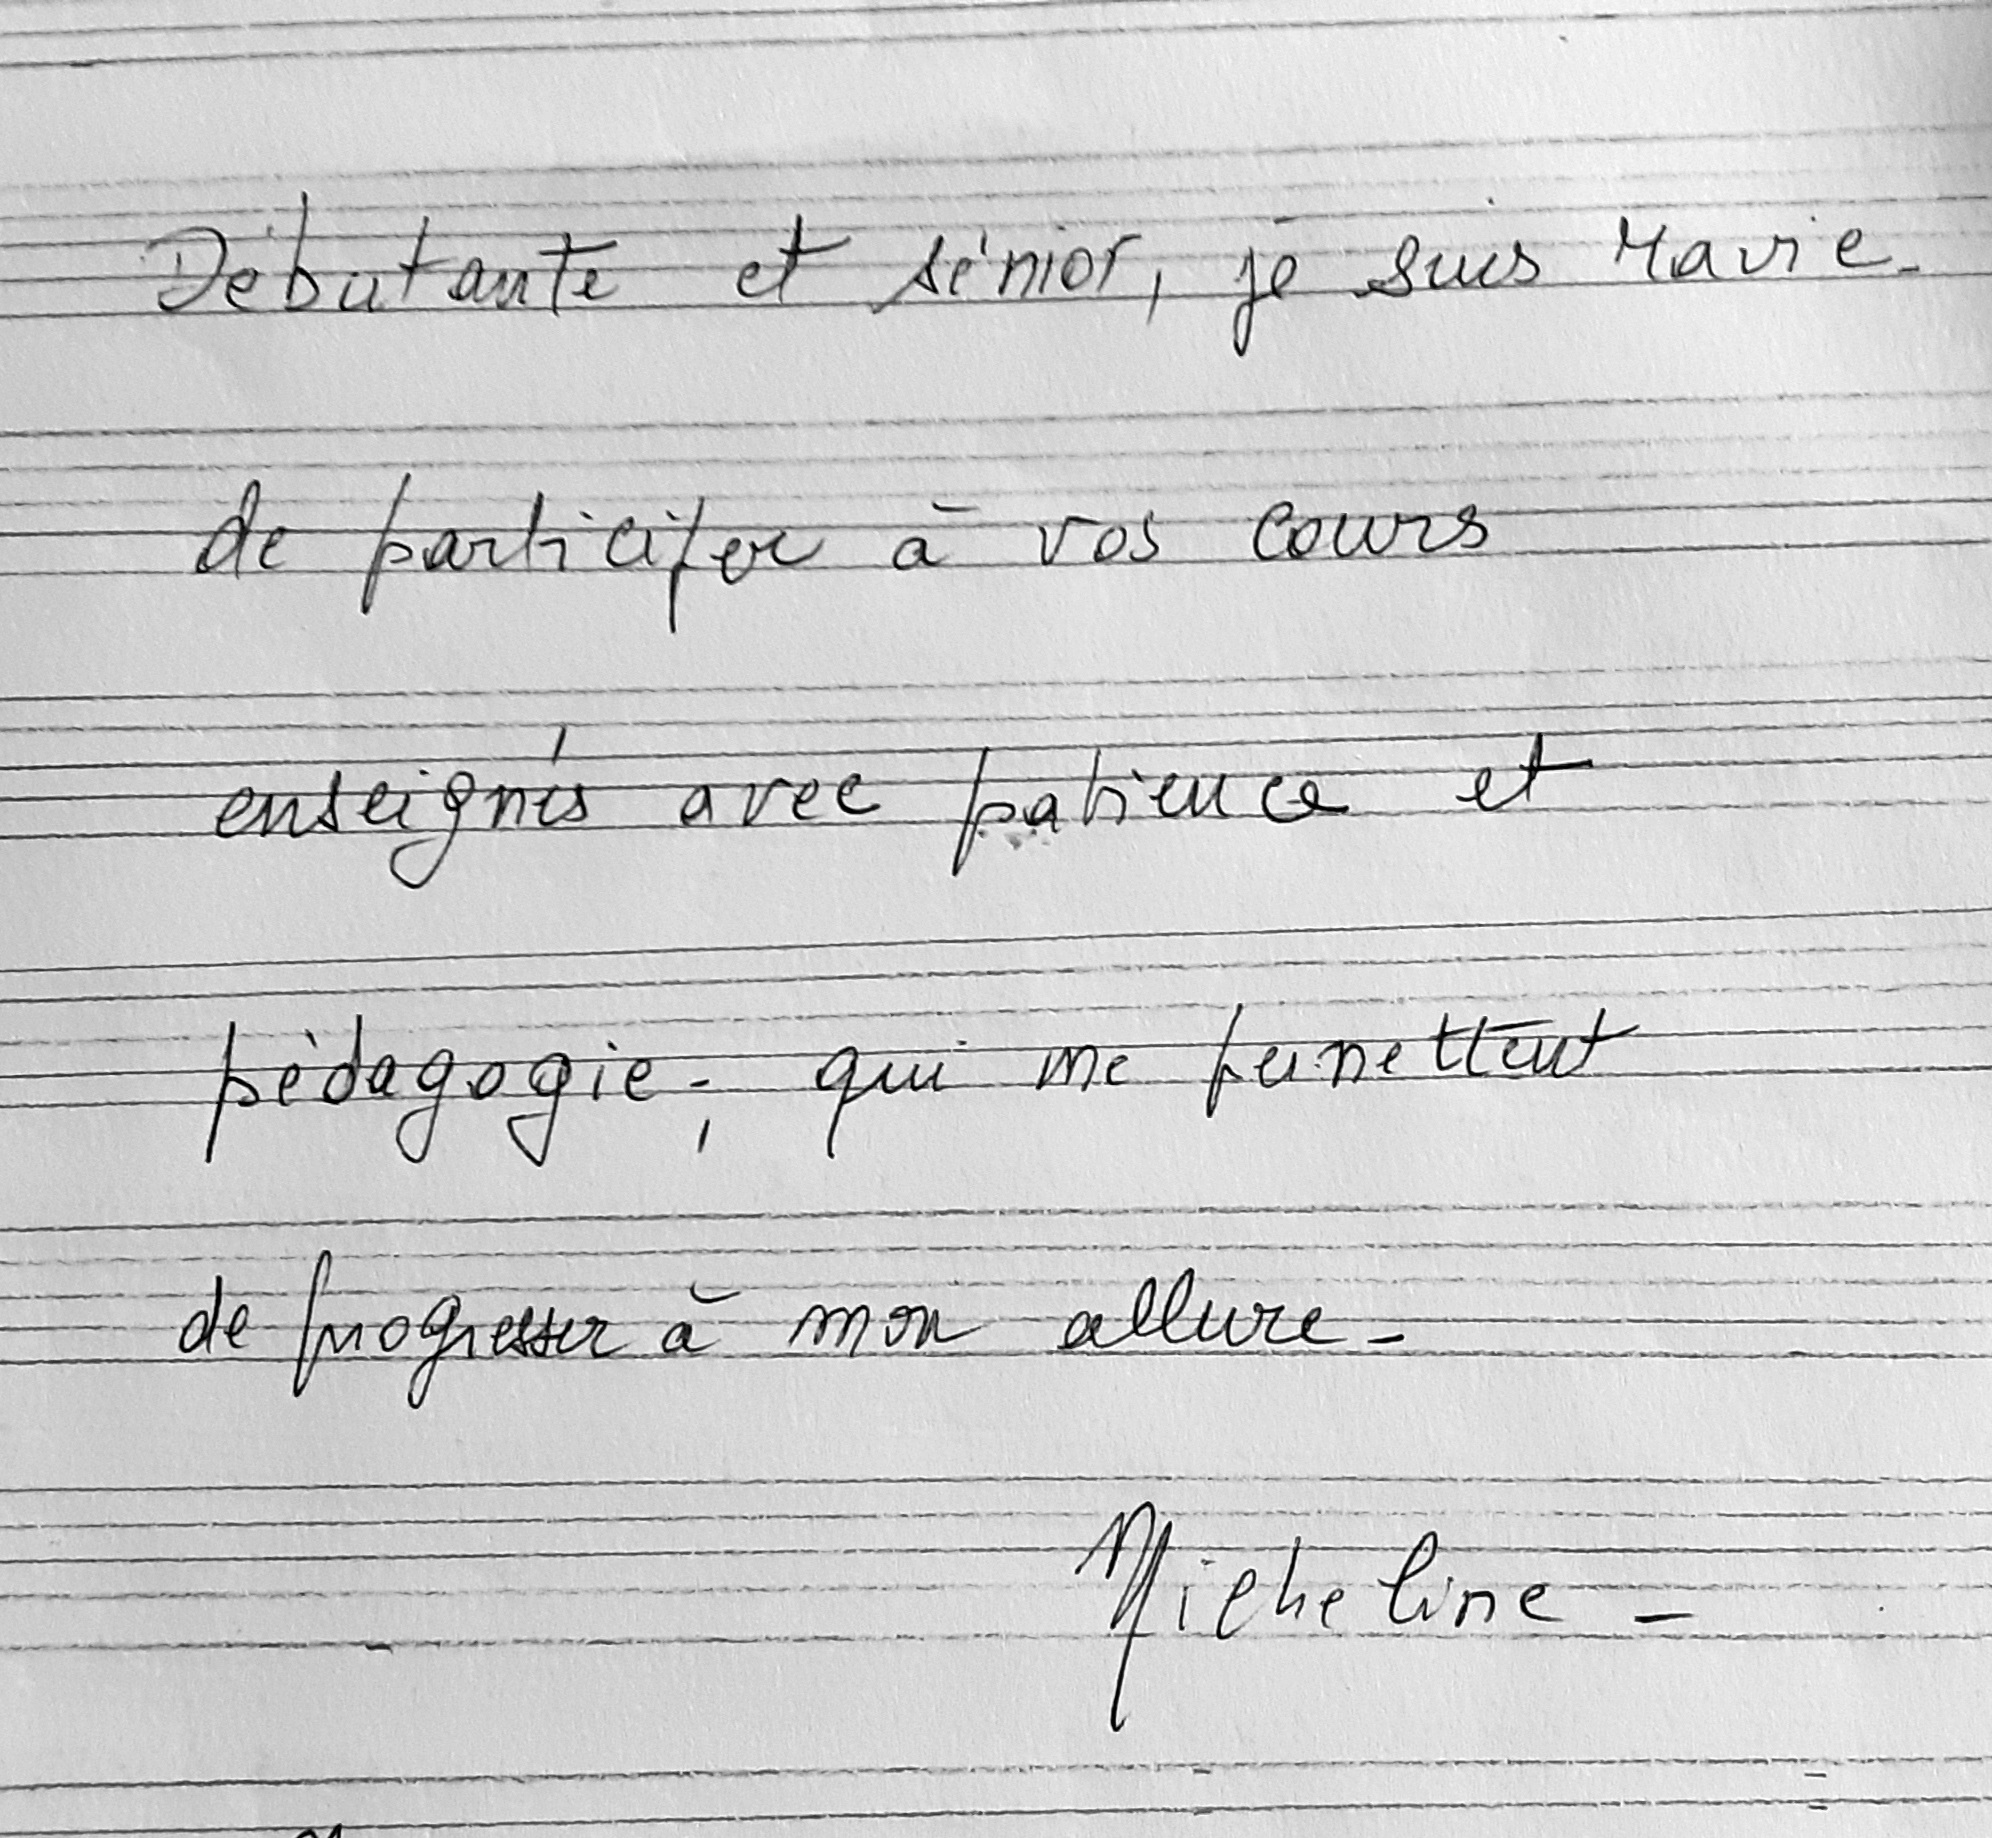 Débutante et sénior, je suis ravie
de participer à vos cours
enseignés avec patience et
pédagogie, qui me permettent
de progresser à mon allure-
Micheline -